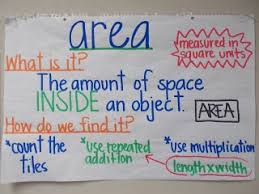 area
measured in
square units
What is it?
The amount of space
INSIDE an object.
AREA
How do we find it?
*count the
tiles
*use repeated
addition
*use multiplication
length x width